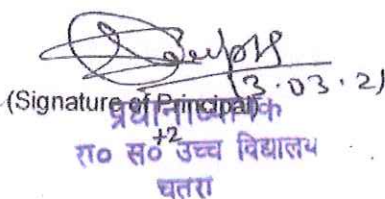 13.03.21
(Signature of Principal)
प्रधानाध्यापक
रा० स० +2 उच्च विद्यालय
चतरा